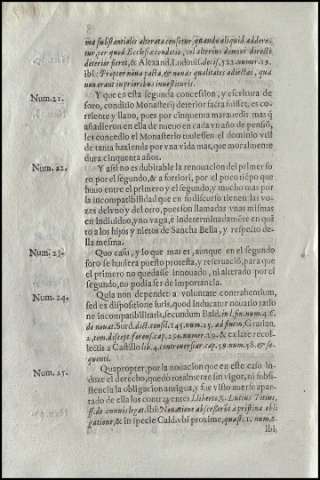 ma substantialis alterata censetur quando aliquid addere-
tur, per quod Ecclesiæ conditio, vel alterius domini directi
deterior fieret, & Alexand. Ludouis. decis. 522. num. 19.
ibi: Propter nina pacta, & nouas qualitates adiectas, qua
non erant in prioribus inuestituris.
Num. 21. Y que en esta segunda concession, y escritura de
foro, condicio Monasterij deterior facta fuisset, es co-
rriente y llano, pues por cinquenta marauedis mas q̃
añadieron en ella de nueuo en cada vn año de pensiō,
les concedio el Monasterio tuuiessen el dominio vtil
de tanta hazienda por vna vida mas, que moralmente
dura cinquenta años.
Num. 22. Y assi no es dubitable la renouacion del primer fo
ro por el segundo, & a fortiori, por el poco tiēpo que
huuo entre el primero y el segundo, y mucho mas por
la incompatibilidad que en su discurso tienen las vo-
zes del vno y del otro, pues son llamadas vnas mismas
en indiuiduo, y no vaga, è indeterminadamēte en quã
to a los hijos y nietos de Sancha Bella, y respeto de-
lla mesma.
Num. 23. Quo casu, y lo que mas es, aunque en el segundo
foro se huuiera puesto protesta, y reseruaciō, para que
el primero no quedasse innouado, ni alterado por el
segundo, no podia ser de importancia.
Num. 24. Quia non dependet a voluntate contrahentium,
sed ex dispositione iuris, quod inducatur nouatio ratio
ne incompatibilitatis, secundum Bald. in l. fin. num. 4. C.
de nouat. Surd. dict. consil. 145. num. 25. ad finem, Gratian.
2. tom. discept. forens. cap. 250. num. 19. & ex late recol-
lectis a Castillo lib. 4. controuersiar. cap. 59. num. 58. & se-
quenti.
Num. 25. Quapropter, por la nouacion que en este caso in-
duze el derecho, quedò totalmente sin vigor, ni subsis-
tencia la obligacion antigua, y fue visto auerse apar-
tado de ella los contrayentes Liberto, & Lucius Titius,
ff. de annuis legat. ibi: Nouatione abscesserit à pristina obli
gatione, & in specie Cald. vbi proxime, quæst. 1. num. 2.
ibi